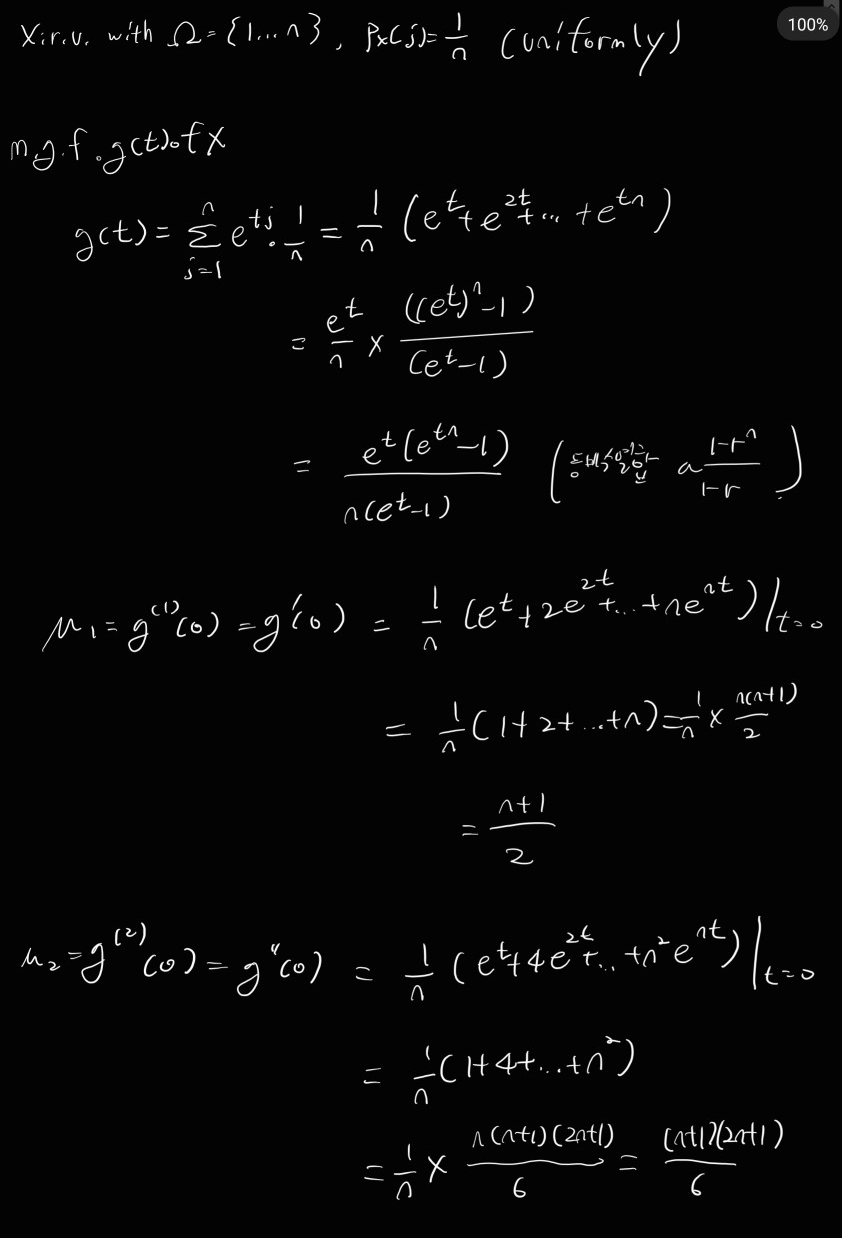 100%
X: r.v. with Ω = {1...n}, Px(j) = 1/n (uniformly)
m.g.f. g(t) of X
g(t) = Σ_{j=1}^{n} e^{tj} · 1/n = 1/n (e^t + e^{2t} + ... + e^{tn})
= e^t/n × ((e^t)^n - 1)/(e^t - 1)
= e^t(e^{tn} - 1)/n(e^t - 1) (등비수열의 합 a (1-r^n)/(1-r))
μ₁ = g^{(1)}(0) = g'(0) = 1/n (e^t + 2e^{2t} + ... + ne^{nt})|_{t=0}
= 1/n (1 + 2 + ... + n) = 1/n × n(n+1)/2
= (n+1)/2
μ₂ = g^{(2)}(0) = g''(0) = 1/n (e^t + 4e^{2t} + ... + n²e^{nt})|_{t=0}
= 1/n (1 + 4 + ... + n²)
= 1/n × n(n+1)(2n+1)/6 = (n+1)(2n+1)/6